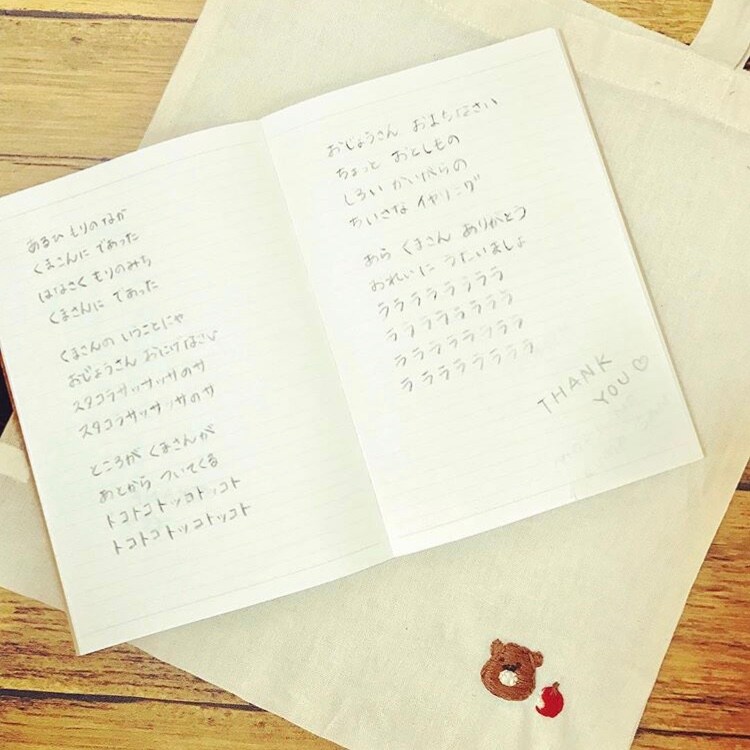 あるひ もりのなか
くまさんに であった
はなさく もりのみち
くまさんに であった
くまさんの いうことにゃ
おじょうさん おにげなさい
スタコラサッサッサのサ
スタコラサッサッサのサ
ところが くまさんが
あとから ついてくる
トコトコトッコトッコト
トコトコトッコトッコト
おじょうさん おまちなさい
ちょっと おとしもの
しろい かいがらの
ちいさな イヤリング
あら くまさん ありがとう
おれいに うたいましょ
ラララララララ
ララララララララ
ララララララララ
ララララララララ
THANK
YOU♡